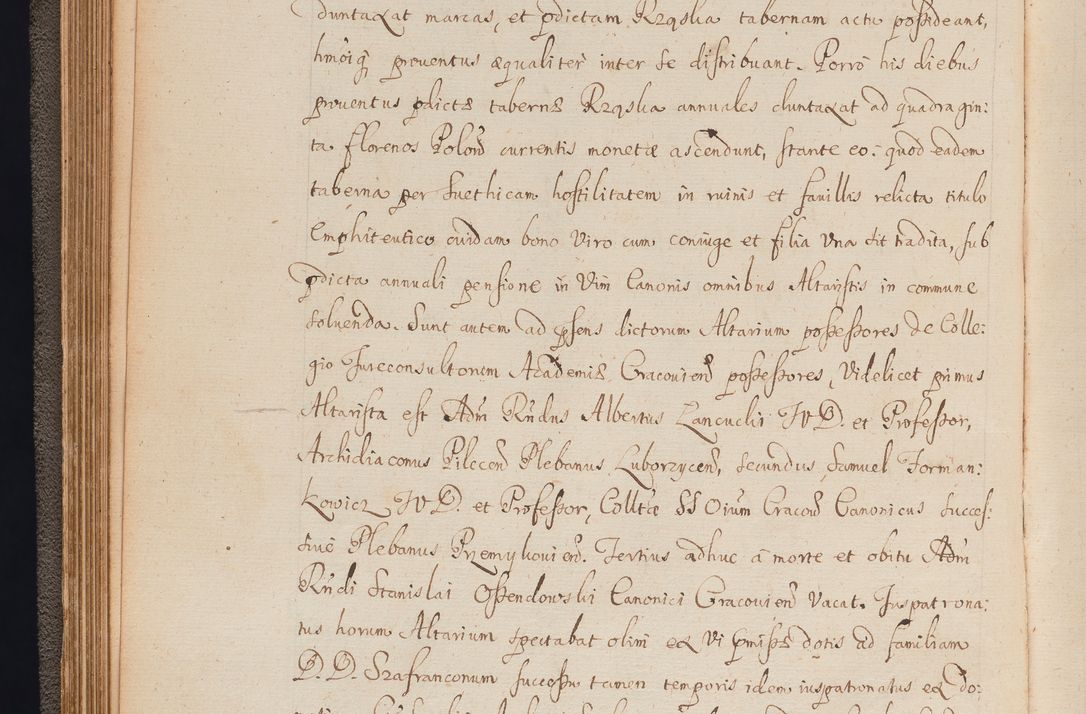 duntaxat marcas, et pdictam Rząska tabernam actu possideant,
hmoiq proventus æqualiter inter se distribuant. Porro his diebus
proventus pdictæ tabernæ Rząska annuales duntaxat ad quadragin:
ta florenos Polon currentis monetæ ascendunt, stante eo: quod eadem
taberna per Suethicam hostilitatem in ruinis et favillis relicta titulo
Emphiteutico cuidam bono Viro cum coniuge et filia una sit tradita, sub
pdicta annuali pensione in Vim Canonis omnibus Altaristis in commune
solvenda. Sunt autem ad psens dictorum Altarium possessores de Colle:
gio Jureconsultorum Academiæ Cracovien possessores, Videlicet primus
Altarista est Adm Rndus Albertus Lancucki IVD. et Professor,
Archidiaconus Pilecen Plebanus Luborzycen, secundus Samuel Forman:
kowicz IVD. et Professor, Colltæ SS Oium Cracov Canonicus Succes:
sivè Plebanus Przemykovien. Tertius adhuc à morte et obitu Adm
Rndi Stanislai Ossendowski Canonici Cracovien vacat. Juspatrona:
tus horum Altarium spectabat olim ex Vi pmissæ dotis ad familiam
D. D. Szafranconum successu tamen temporis idem iuspatronatus ex do: